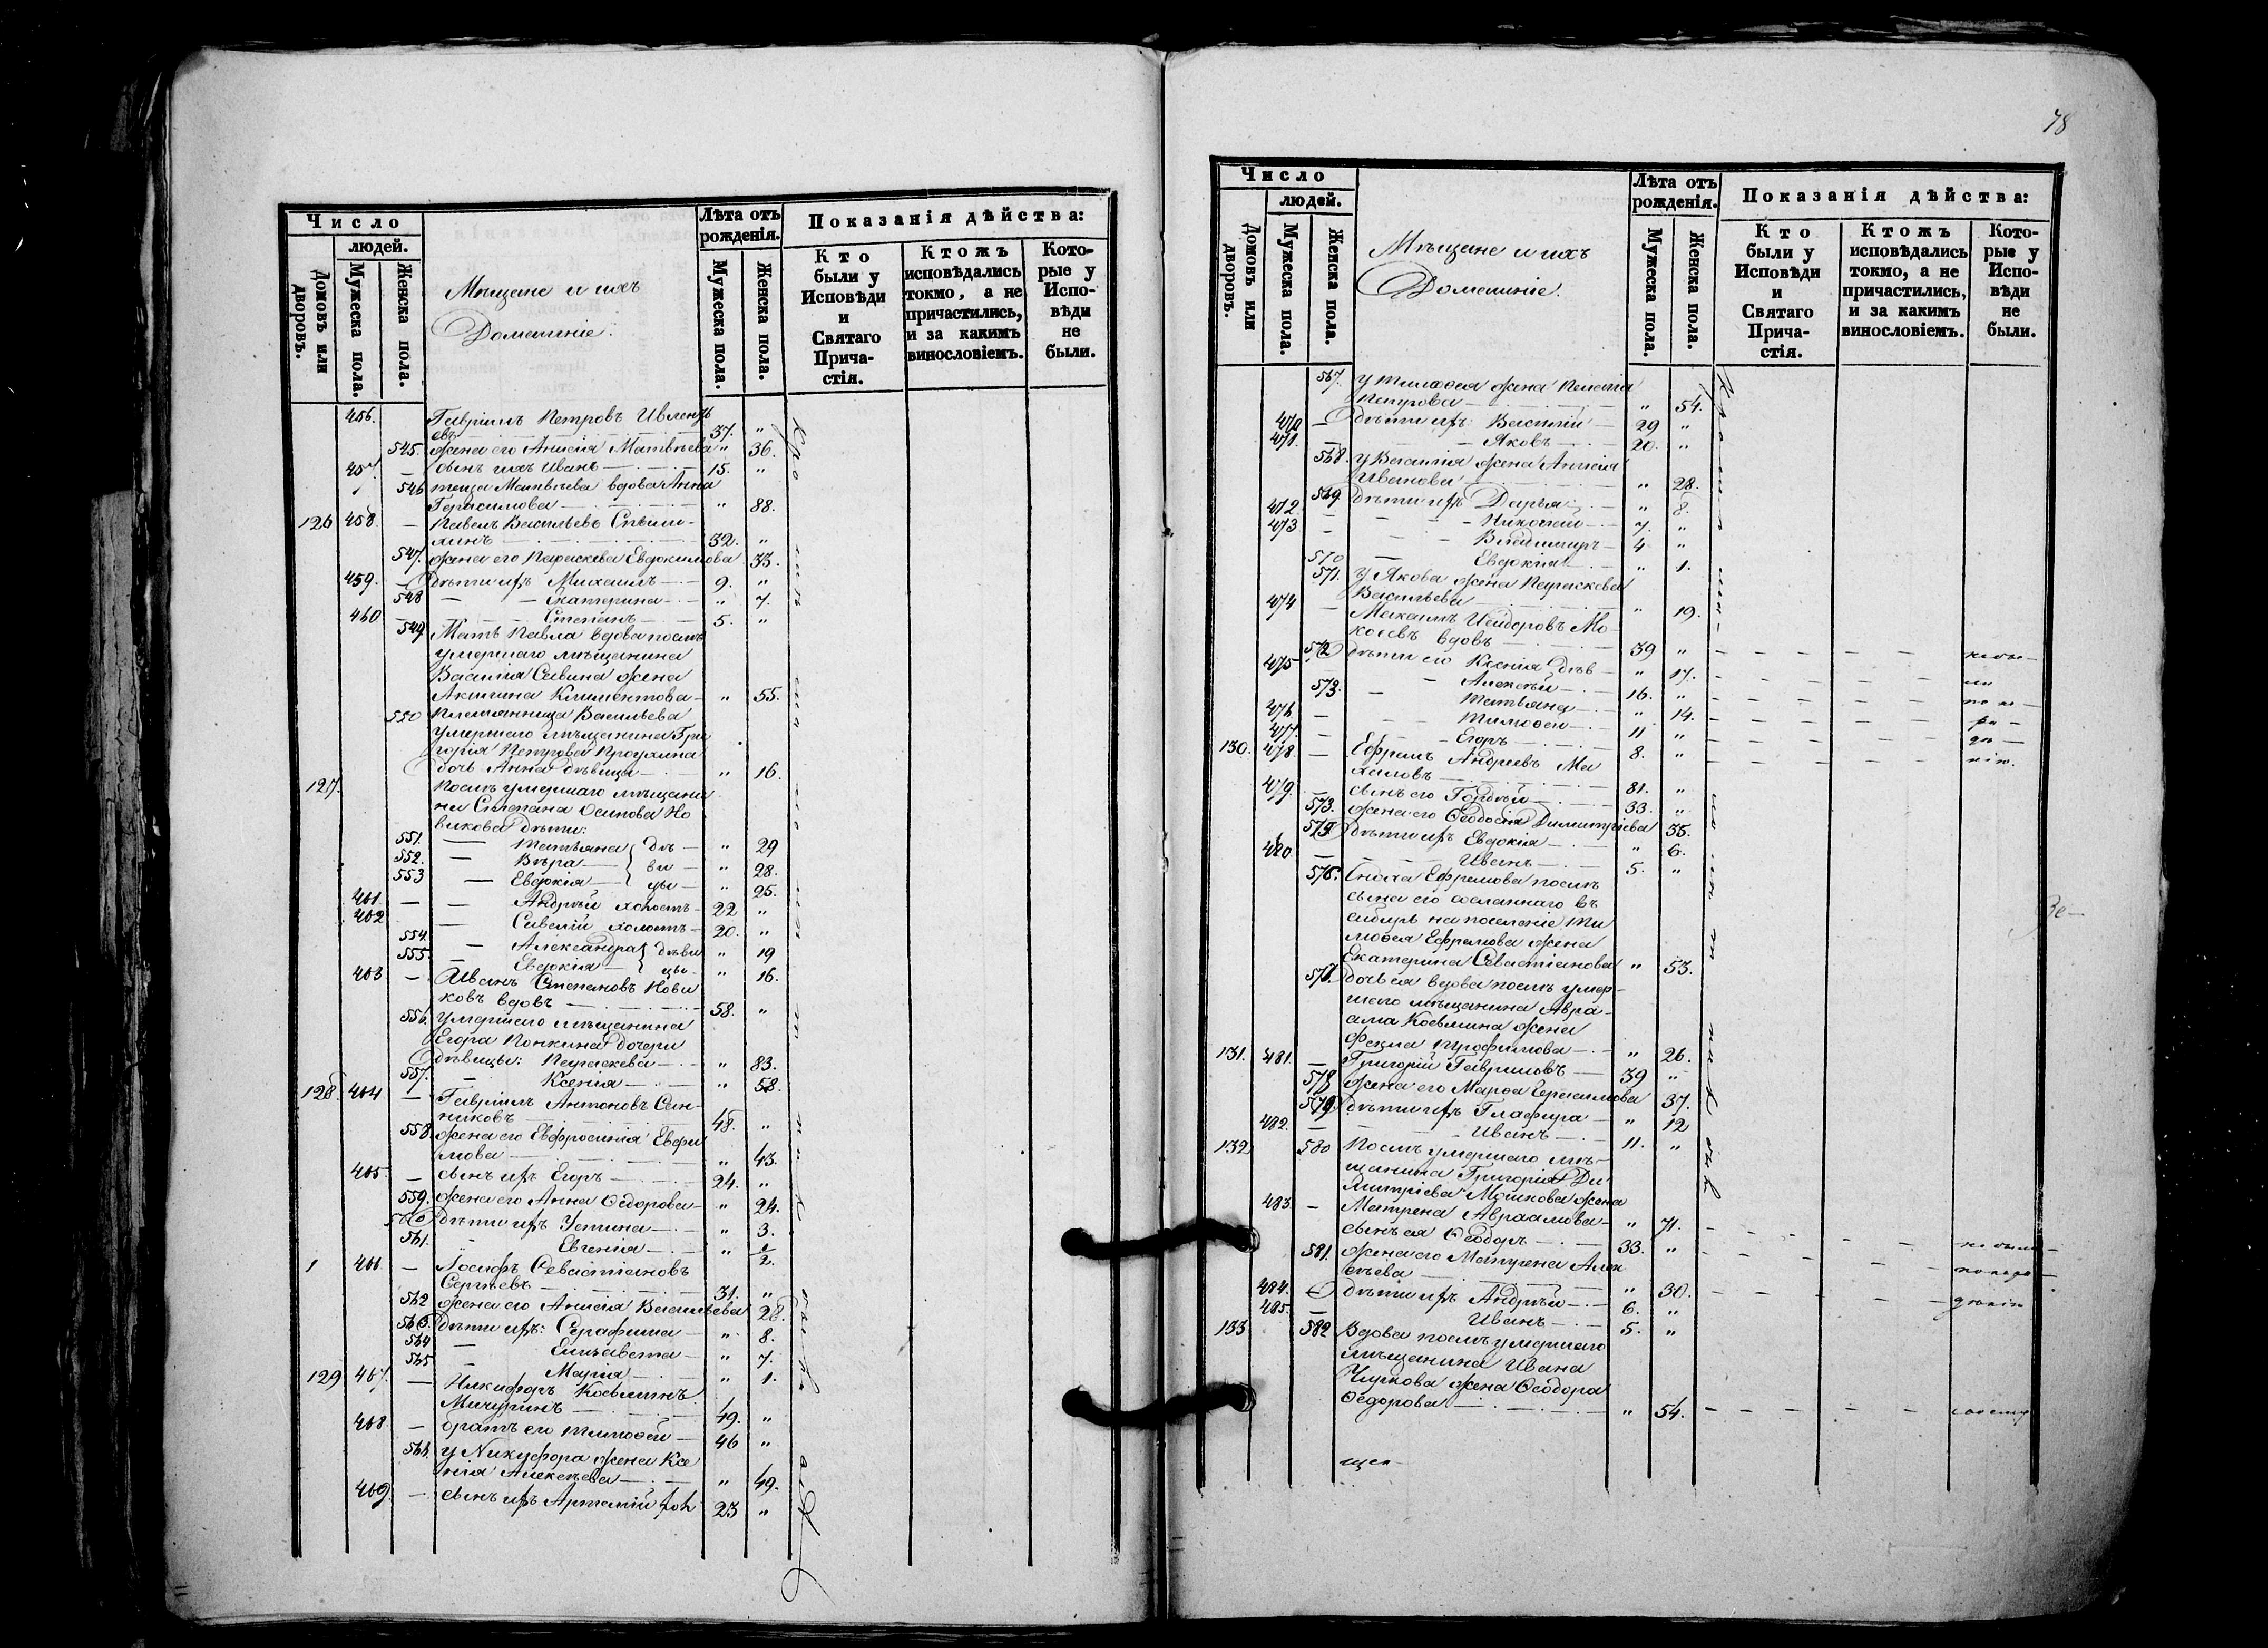 Число
людей.
Домовъ или дворовъ.
Мужеска пола.
Женска пола.
Мѣщане и ихъ
Домашніе.
Лѣта отъ рожденія.
Мужеска пола.
Женска пола.
Показанія дѣйства:
Кто были у Исповѣди и Святаго Прича- стія.
Ктожъ исповѣдались токмо, а не причастились, и за какимъ винословіемъ.
Кото- рые у Испо- вѣди не были.
456. Гавріилъ Петровъ Ивлень
евъ 37. "
545. жена его Анисія Матвѣева " 36.
457. — сынъ ихъ Иванъ 15. "
546 теща Матвѣева вдова Анна
Герасимова " 88.
126 458. — Павелъ Васильевъ
хинъ 32. "
547. жена его Параскева Евдокимова 33.
459. — дѣти ихъ Михаилъ 9. "
548 — Екатерина " 7.
460 — Степанъ 5. "
549 Мать Павла вдова послѣ
умершаго мѣщанина
Василія Савина жена
Акилина Климентова " 55.
550 Племянница Васильева
умершаго мѣщанина Гри
горія Петрова
дочь Анна дѣвица " 16.
127. Послѣ умершаго мѣщани
на Степана Осипова Но
викова дѣти:
551. — Татьяна дѣ " 29
552. — Вѣра ви " 28.
553 — Евдокія цы " 25.
461 — Андрей холостъ 22 "
462 — Савелій холостъ 20. "
554. — Александра дѣви " 19
555. — Евдокія цы " 16.
463 — Иванъ Степановъ Нови
ковъ вдовъ 58. "
556. умершаго мѣщанина
Егора Понкина дочери
дѣвицы: Параскева " 83.
557. — Ксенія " 58.
128. 464 — Гавріилъ Антоновъ Сан
никовъ 48. "
558. жена его Евфросинія Ефи
мова " 43.
465. — сынъ ихъ Егоръ 24. "
559. жена его Анна Ѳедорова " 24.
560 дѣти ихъ Устина " 3.
561. " Евгенія "
1 466. — Іосифъ Севастіановъ
Сергѣевъ 31. "
562 жена его Анисія Васильева 28.
563. дѣти ихъ: Серафима " 8.
564 — Елизавета " 7.
565 — Марія " 1.
129 467. — Никифоръ Космынъ
Мичуринъ 49. "
468 — братъ его Тимоѳей 46 "
566. у Никифора жена Ксе
нія Алексѣева " 49.
469. — сынъ ихъ Артемій хол 23 "
78
Число
людей.
Домовъ или дворовъ.
Мужеска пола.
Женска пола.
Мѣщане и ихъ
Домашніе.
Лѣта отъ рожденія.
Мужеска пола.
Женска пола.
Показанія дѣйства:
Кто были у Исповѣди и Святаго Прича- стія.
Ктожъ исповѣдались токмо, а не причастились, и за какимъ винословіемъ.
Кото- рые у Испо- вѣди не были.
567. у Тимоѳея жена Пелагія
Петрова " 54.
470 — дѣти ихъ: Василій 29 "
471. — Яковъ 20. "
568. у Василія жена Анисія
Иванова " 28.
569. дѣти ихъ Дарья " 8.
472 — Николай 7. "
473 — Владиміръ 4 "
570 — Евдокія " 1.
571. у Якова жена Параскева
Васильева " 19.
474 — Михаилъ Исидоровъ Мо
косевъ вдовъ 39 "
572 дѣти его Ксенія дѣв " 17.
475 — Алексѣй 16. "
573. — Татьяна " 14.
476 — Тимоѳей 11 "
477. — Егоръ 8. "
130. 478. — Ефремъ Андреевъ Ма
халовъ 81. "
479. — сынъ его Гордѣй 33. "
573. жена его Ѳеодосія Димитріева 35.
575 дѣти ихъ Евдокія " 6.
480. — Иванъ 5. "
576. Сноха Ефремова послѣ
сына его сосланнаго въ
сибирь на поселеніе Ти
моѳея Ефремова жена
Екатерина Севастіанова " 53.
577. дочь ея вдова послѣ умер-
шаго мѣщанина Авра-
ама Косьмина жена
Ѳекла Трофимова " 26.
131. 481. — Григорій Гавриловъ 39 "
578 жена его Марѳа Герасимова 37.
579 дѣти ихъ Глафира " 12
482. — Иванъ 11. "
132 580 Послѣ умершаго мѣ-
щанина Григорія Ди
митріева Мошкова жена
Матрена Авраамова " 71.
483. — сынъ ея Ѳеодоръ 33. "
581. жена его Матрена Алек
сѣева " 30.
484. дѣти ихъ Андрей 6. "
485. — Иванъ 5. "
133 582 Вдова послѣ умершаго
мѣщанина Ивана
Чиркова жена Ѳеодора
Ѳедорова " 54.